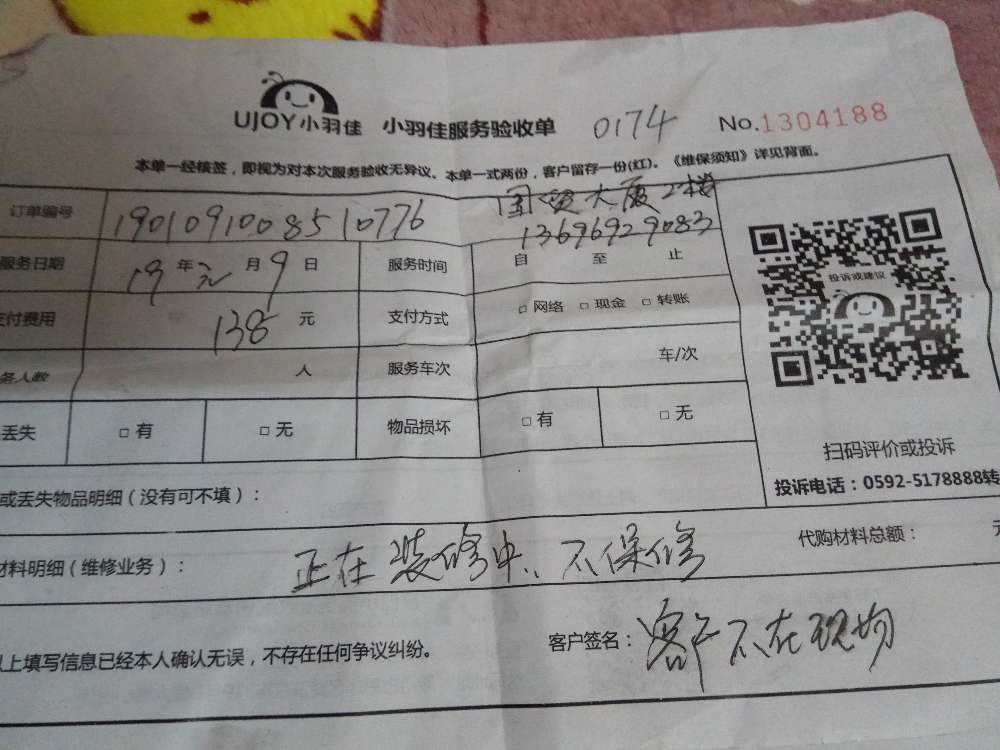 UJOY小羽佳 小羽佳服务验收单 0174 No.1304188
本单一经核签，即视为对本次服务验收无异议。本单一式两份，客户留存一份(红)。《维保须知》详见背面。
订单编号 1901091008510776 国贸大厦2楼
13696929083
服务日期 19年元月9日 服务时间 自 至 止
支付费用 138元 支付方式 □网络 □现金 □转账
务人数 人 服务车次 车/次
投诉或建议
丢失 □有 □无 物品损坏 □有 □无
扫码评价或投诉
投诉电话：0592-5178888转
或丢失物品明细（没有可不填）：
材料明细（维修业务）： 正在装修中、不保修 代购材料总额： 元
以上填写信息已经本人确认无误，不存在任何争议纠纷。 客户签名：客户不在现场